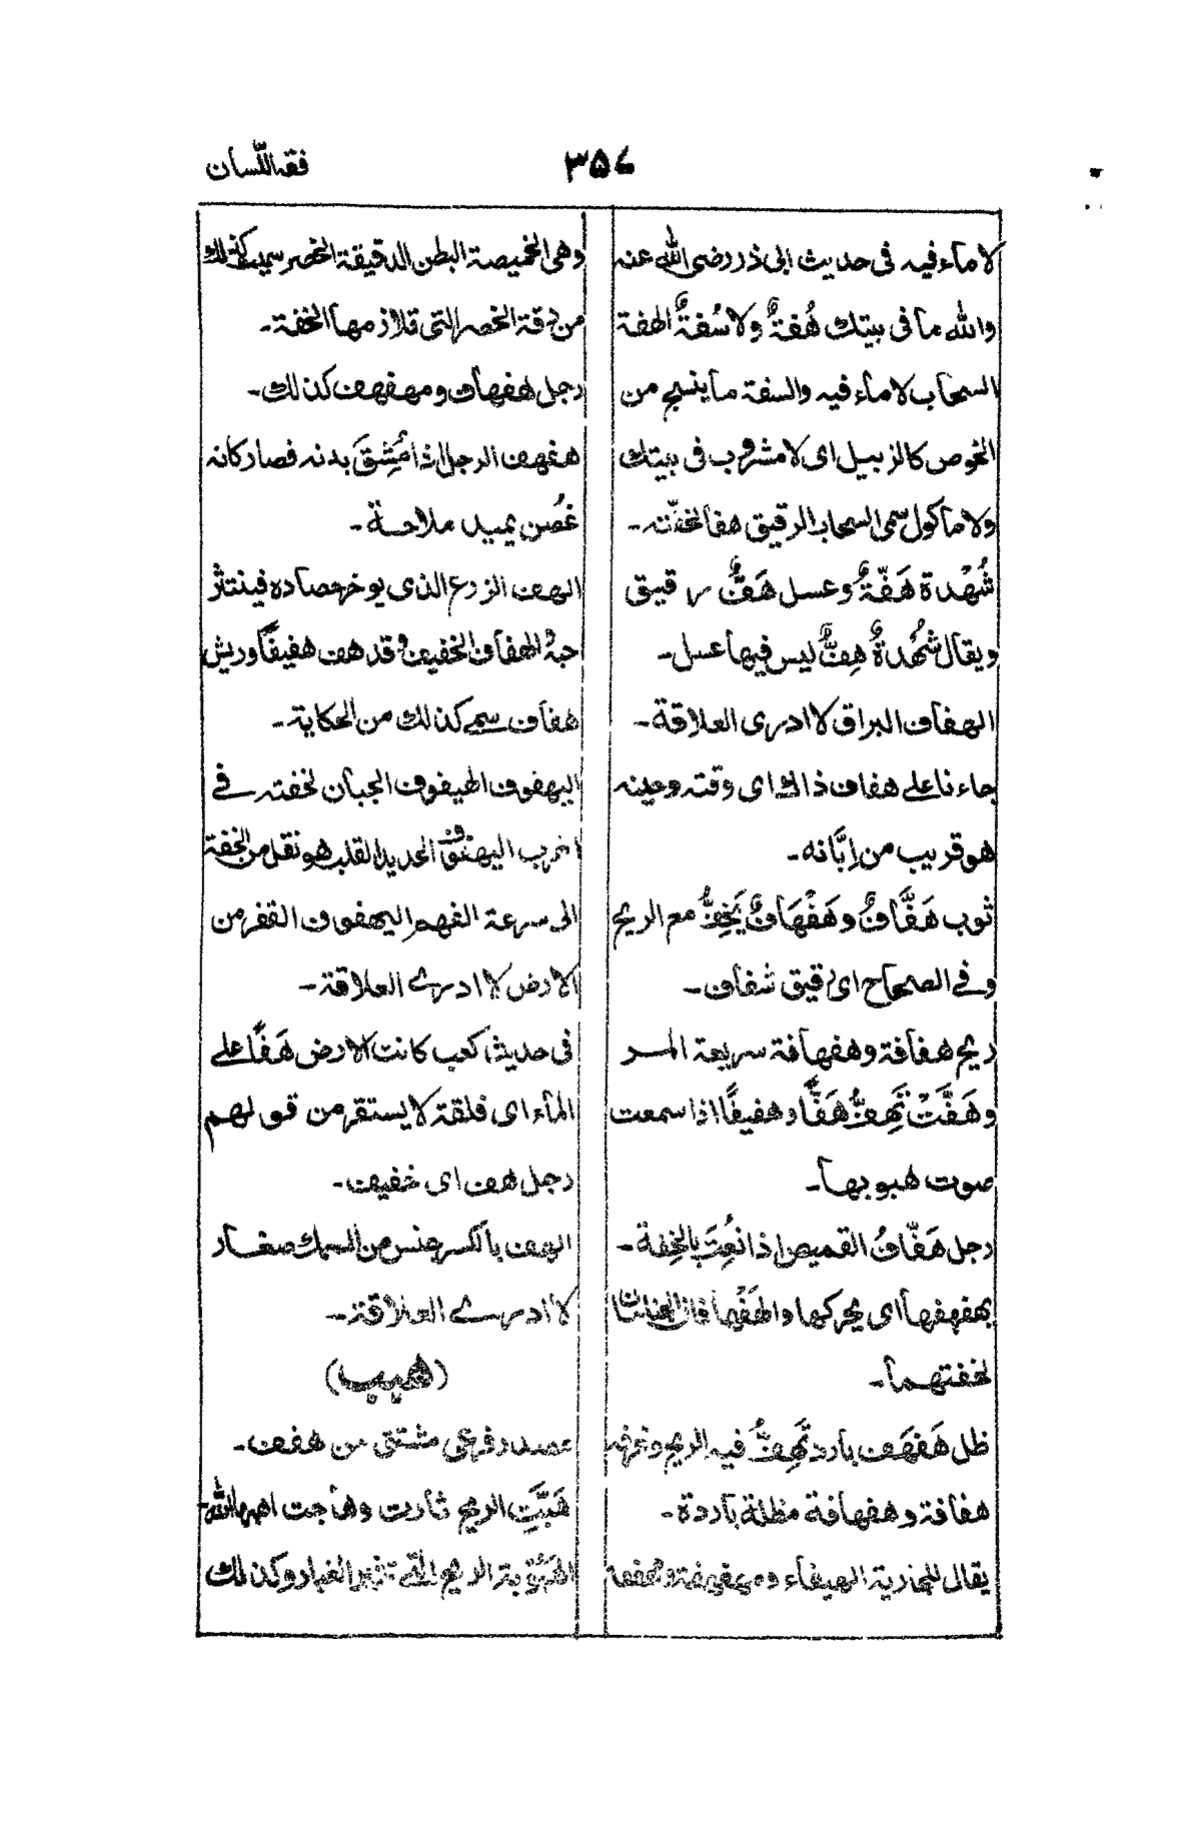 فقه اللّسان
٣٥٤
لا ماء فيه فى حديث ابى ذر رضى الله عنه
والله ما فى بيتك هُفةٌ ولا سُفةٌ الهفة
السحاب لا ماء فيه والسفة ما ينسج من
الخوص كالزبيل اى لا مشروب فى بيتك
ولا ماكول سمى السحاب الرقيق هفا لخفّته۔
شُهْدة هَفّةٌ وعسل هَفٌّ رقيق
ويقال شُهْدةٌ هِفٌّ ليس فيها عسل۔
الهفاف البراق لا ادرى العلاقة۔
جاءنا على هفاف ذالك اى وقته وحينه
هو قريب من اِبَّانه۔
ثوب هَفَّافٌ وهَفْهَافٌ يَخِفُّ مع الريح
وفى الصحاح اى رقيق شفاف۔
ريح هفافة وهفهافة سريعة المر
وهَفَّتْ تَهِفُّ هَفًّا وهفيفًا اذا سمعت
صوت هبوبها۔
رجل هَفّافُ القميص اذا نُعِتَ بالخِفة۔
يهفهفها اى يحركها والهَفْهافان الجناحان
لخفتهما۔
ظل هَفهَف بارد تَهِفُّ فيه الريح وغرفه
هفافة وهفهافة مظلة باردة۔
يقال للجارية الهيفاء ومهفهفة ومهففة
وهى الخميصة البطن الدقيقة الخصر سميت كذلك
من دقة الخصر التى قلازمها الخفة۔
رجل هفهاف ومهفهف كذلك۔
هفهف الرجل اذا مُشِقَ بدنه فصار كانه
غُصن يميد ملاحة۔
الهف الزرع الذى يوخر حصاده فينتثر
حبهُ الهفاف الخفيف وقد هف هفيفًا وريش
هفاف سمے كذلك من الحكاية۔
اليهفوف الهيفوف الجبان لخفته فے
الحرب اليهفوف الحديد القلب هو نقل من الخفة
الى سرعة الفهم اليهفوف القفر من
الارض لا ادرے العلاقة۔
فى حديث كعب كانت الارض هَفًّا على
الماء اى قلقة لا يستقر من قولهم
رجل هف اى خفيف۔
الهف بالكسر جنس من السمك صغار
لا ادرے العلاقة۔
(هبب)
مصدر فرعى مشتق من هفف۔
هَبَّتِ الريح ثارت وهاجت اهبها الله
الهَبُوبة الريح التے تثير الغبار وكذلك